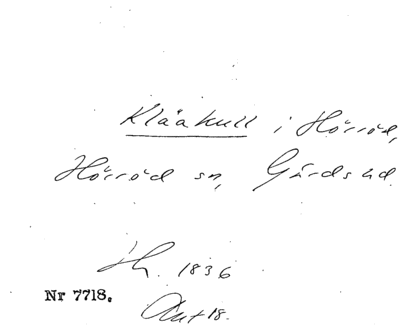 Klåakull i Hörröd,
Hörröd sn, Gärds hd.
h. 1836
Nr 7718.
18.